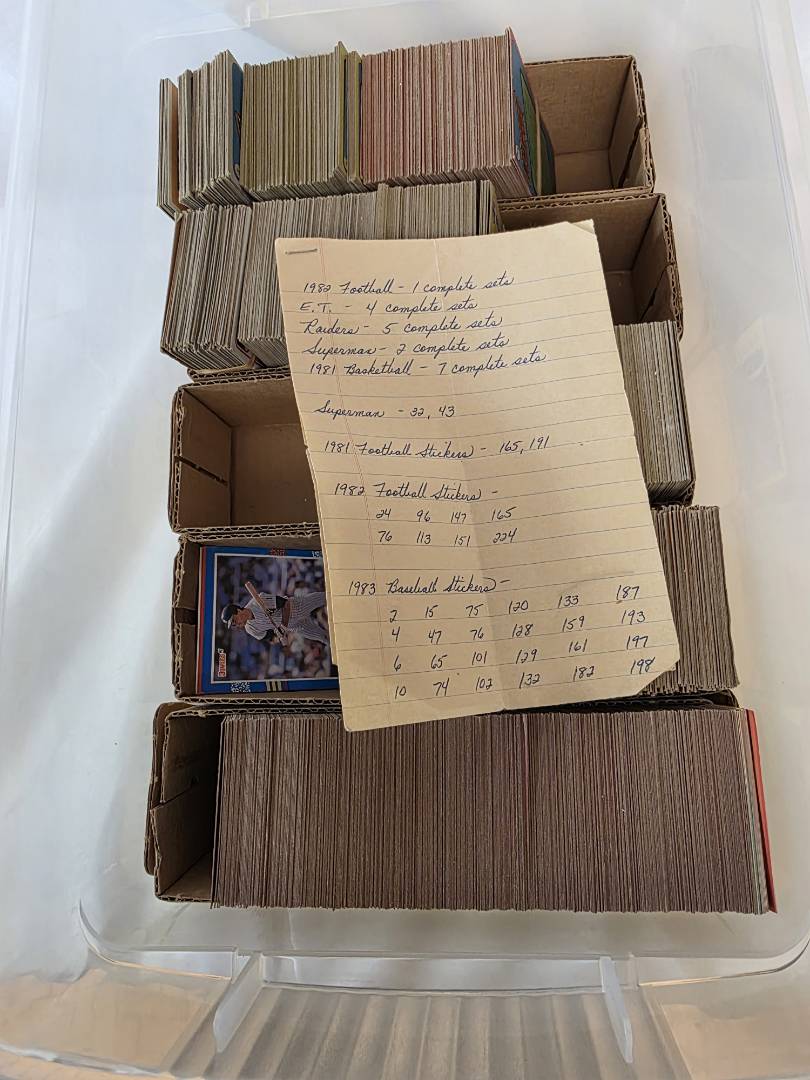 1982 Football - 1 complete sets
E.T. - 4 complete sets
Raiders - 5 complete sets
Superman - 2 complete sets
1981 Basketball - 7 complete sets
Superman - 32, 43
1981 Football Stickers - 165, 191
1982 Football Stickers -
24 96 147 165
76 113 151 224
1983 Baseball Stickers -
2 15 75 120 133 187
4 47 76 128 159 193
6 65 101 129 161 197
10 74 102 132 182 198